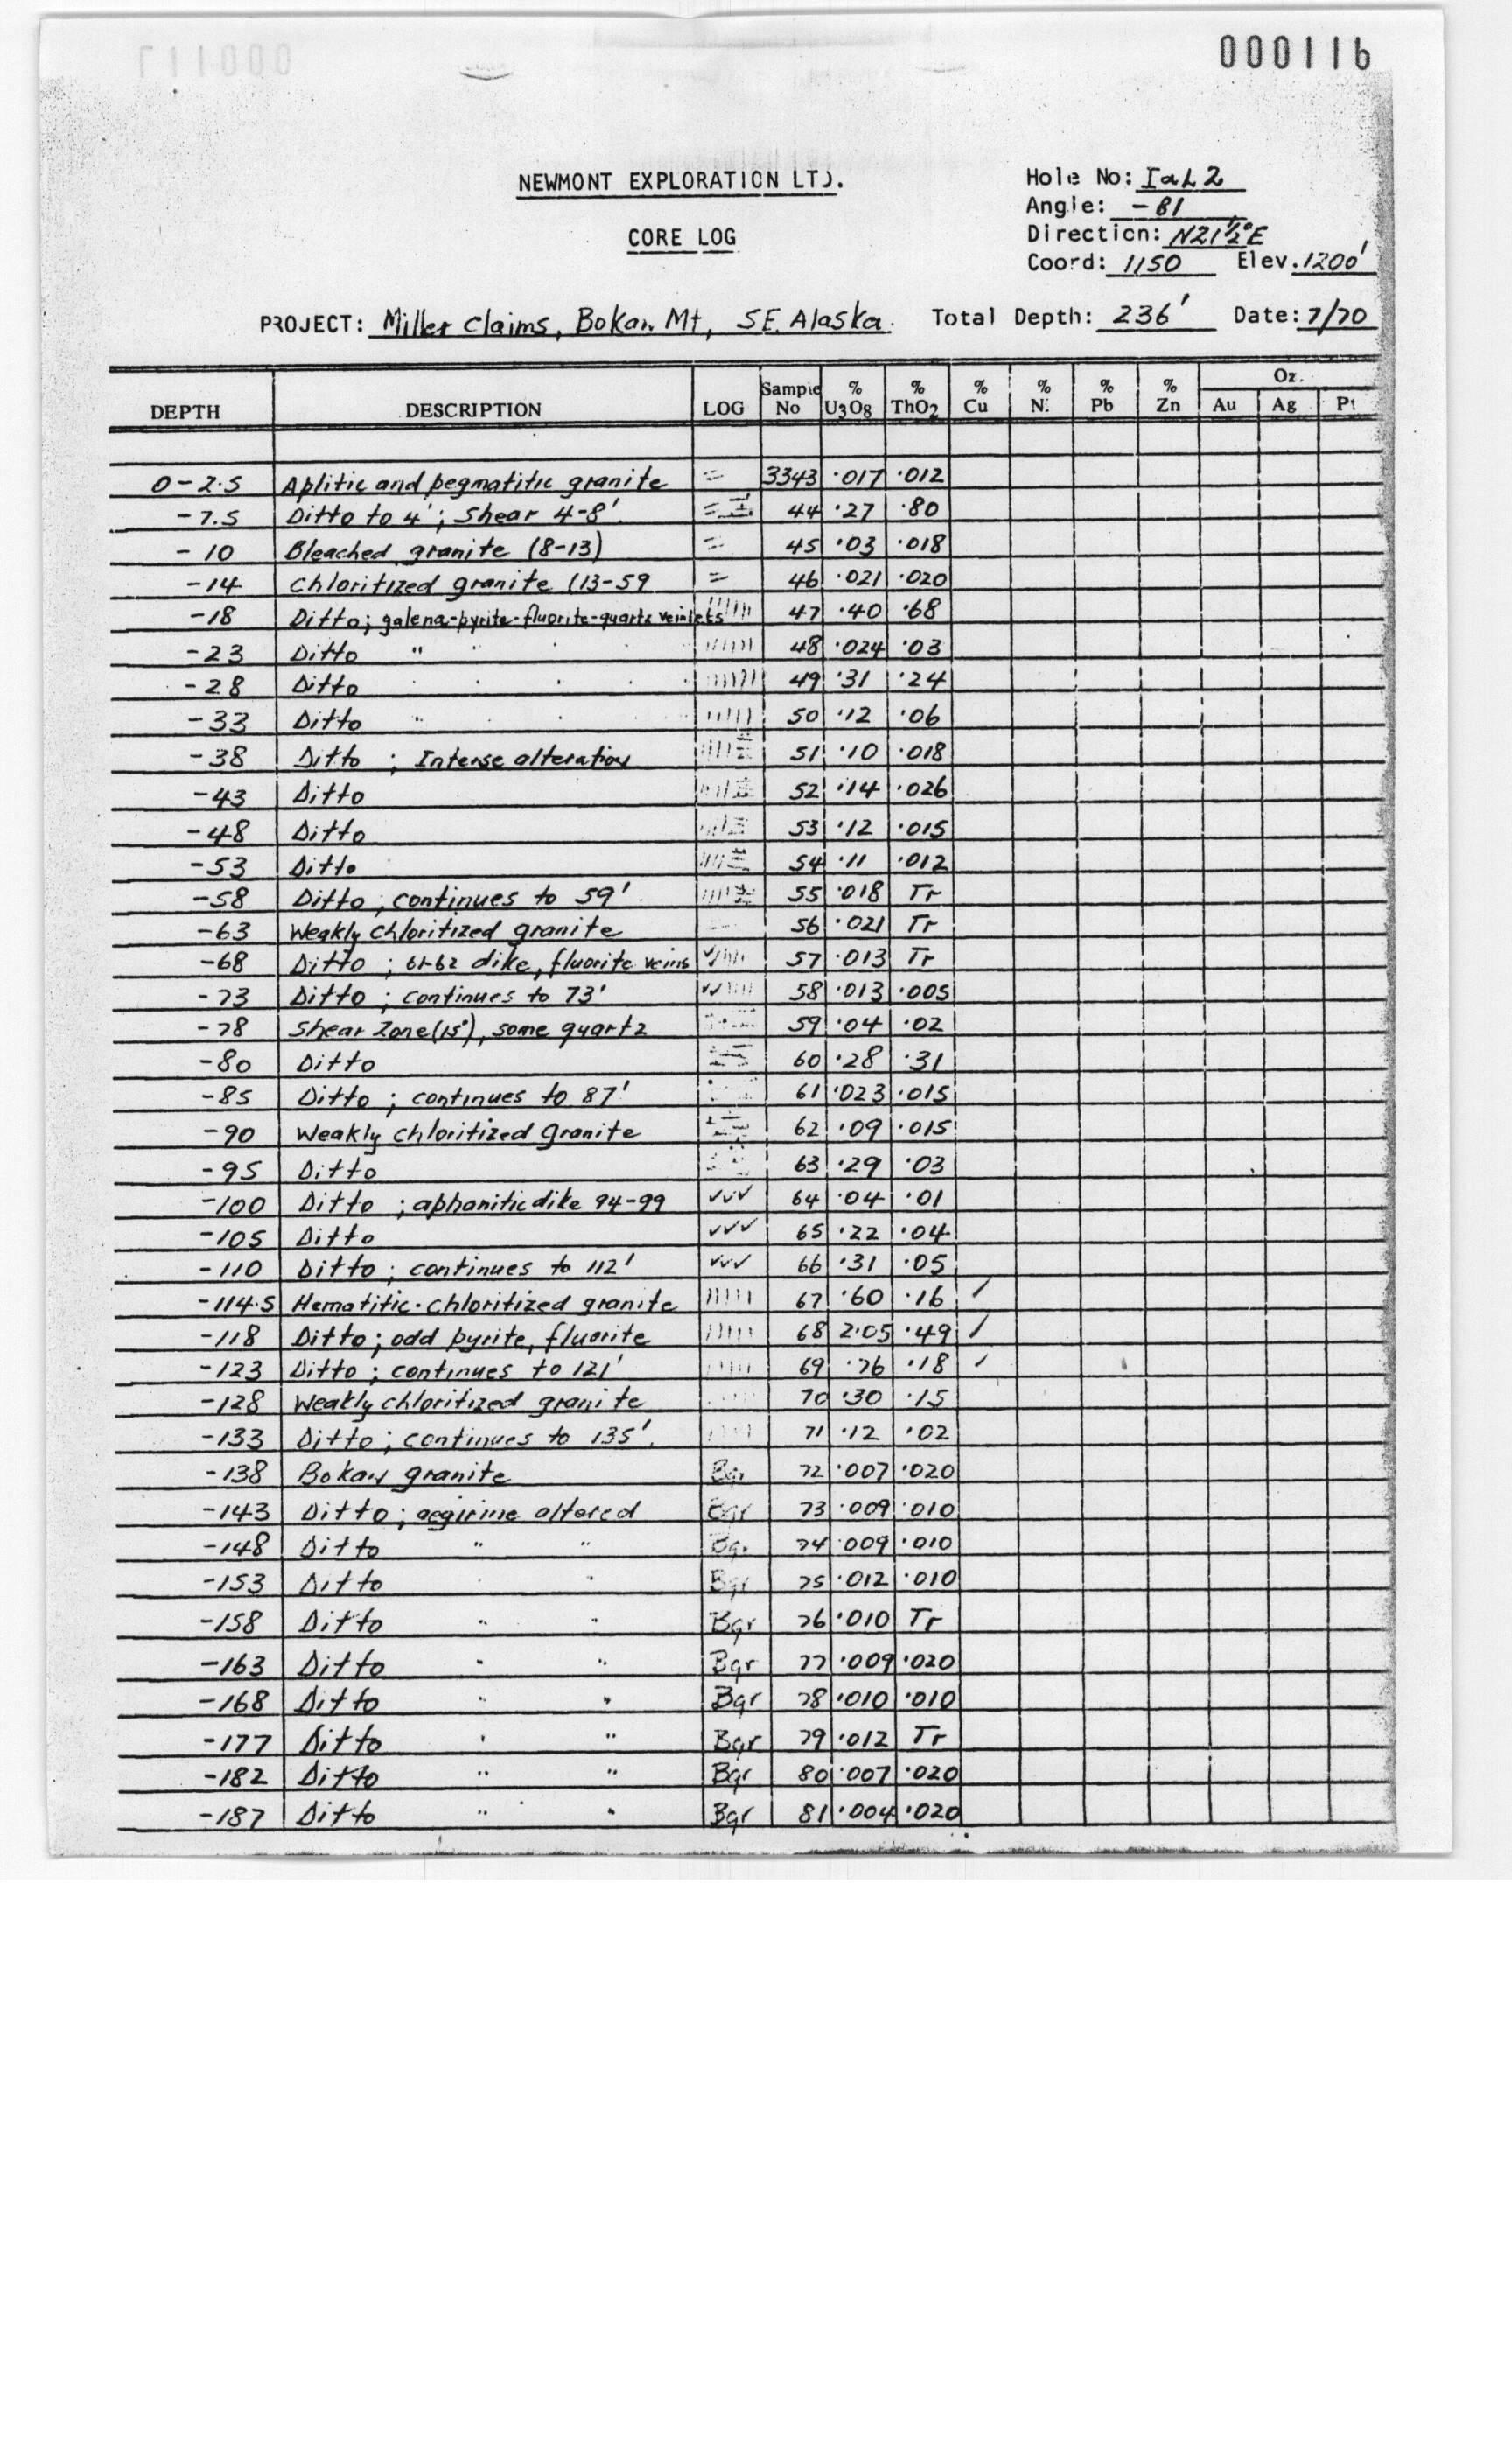 000116
NEWMONT EXPLORATION LTD.
CORE LOG
Hole No: I&L 2
Angle: -81
Direction: N21½°E
Coord: 1150 Elev. 1200'
PROJECT: Miller Claims, Bokan Mt, SE. Alaska. Total Depth: 236' Date: 7/70
DEPTH DESCRIPTION LOG Sample No % U3O8 % ThO2 % Cu % Ni % Pb % Zn Oz. Au Ag Pt
0-2.5 Aplitic and pegmatitic granite = 3343 .017 .012
-7.5 Ditto to 4'; Shear 4-8' 44 .27 .80
-10 Bleached granite (8-13) = 45 .03 .018
-14 Chloritized granite (13-59 = 46 .021 .020
-18 Ditto; galena-pyrite-fluorite-quartz veinlets 47 .40 .68
-23 Ditto " 48 .024 .03
-28 Ditto 49 .31 .24
-33 Ditto " 50 .12 .06
-38 Ditto ; Intense alteration 51 .10 .018
-43 Ditto 52 .14 .026
-48 Ditto 53 .12 .015
-53 Ditto 54 .11 .012
-58 Ditto ; continues to 59' 55 .018 Tr
-63 Weakly chloritized granite 56 .021 Tr
-68 Ditto ; 61-62 dike, fluorite veins 57 .013 Tr
-73 Ditto ; continues to 73' 58 .013 .005
-78 Shear Zone (15°), some quartz 59 .04 .02
-80 Ditto 60 .28 .31
-85 Ditto ; continues to 87' 61 .023 .015
-90 Weakly chloritized granite 62 .09 .015
-95 Ditto 63 .29 .03
-100 Ditto ; aphanitic dike 94-99 ✓✓✓ 64 .04 .01
-105 Ditto ✓✓✓ 65 .22 .04
-110 Ditto ; continues to 112' ✓✓✓ 66 .31 .05
-114.5 Hematitic-chloritized granite 67 .60 .16 ✓
-118 Ditto; odd pyrite, fluorite 68 2.05 .49 ✓
-123 Ditto ; continues to 121' 69 .76 .18 ✓
-128 Weakly chloritized granite 70 .30 .15
-133 Ditto ; continues to 135'. 71 .12 .02
-138 Bokan granite Bgr 72 .007 .020
-143 Ditto ; aegirine altered Bgr 73 .009 .010
-148 Ditto " " Bgr 74 .009 .010
-153 Ditto " " Bgr 75 .012 .010
-158 Ditto " " Bgr 76 .010 Tr
-163 Ditto " " Bgr 77 .009 .020
-168 Ditto " " Bgr 78 .010 .010
-177 Ditto " " Bgr 79 .012 Tr
-182 Ditto " " Bgr 80 .007 .020
-187 Ditto " " Bgr 81 .004 .020